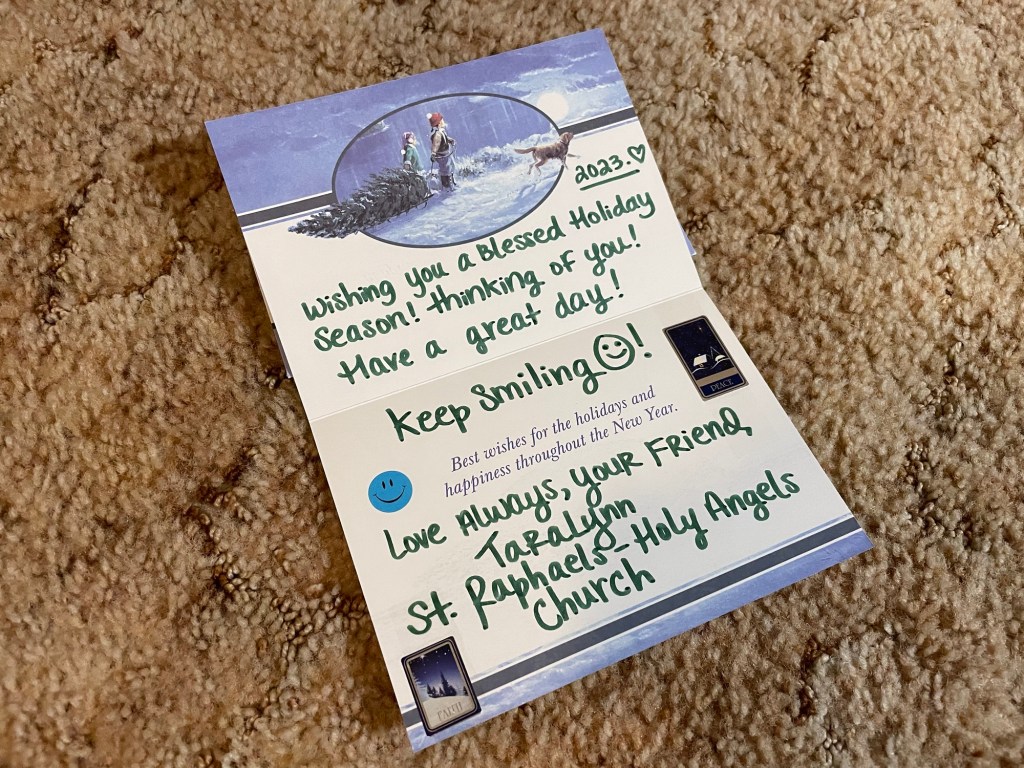 2023.♡
Wishing you a Blessed Holiday
Season! Thinking of you!
Have a great day!
Keep Smiling☺!
PEACE
Best wishes for the holidays and
happiness throughout the New Year.
Love Always, your Friend,
Taralynn
St. Raphaels-Holy Angels
Church
FAITH